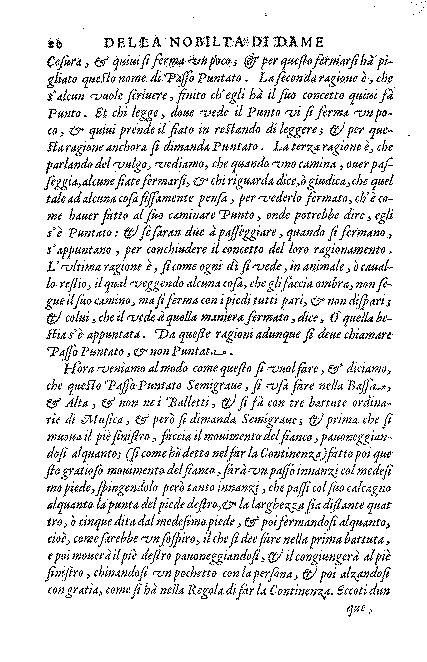 26 DELLA NOBILTA DI DAME
Cesura, & quiui si ferma vn poco; & per questo fermarsi hà pi-
gliato questo nome di Passo Puntato. La seconda ragione è, che
s'alcun vuole scriuere, finito ch'egli hà il suo concetto quiui fà
Punto. Et chi legge, doue vede il Punto vi si ferma vn po-
co, & quiui prende il fiato in restando di leggere; & per que-
sta ragione anchora si dimanda Puntato. La terza ragione è, che
parlando del vulgo, vediamo, che quando vno camina, ouer pas-
seggia, alcune fiate fermarsi, & chi riguarda dice, ò giudica, che quel
tale ad alcuna cosa fissamente pensa, per vederlo fermato, ch'è co-
me hauer fatto al suo caminare Punto, onde potrebbe dire, egli
s'è Puntato: & se saran due à passeggiare, quando si fermano,
s'appuntano, per conchiudere il concetto del loro ragionamento.
L'vltima ragione è, si come ogni dì si vede, in animale, ò caual-
lo restio, il qual veggendo alcuna cosa, che gli faccia ombra, non se-
gue il suo camino, ma si ferma con i piedi tutti pari, & non dispari;
& colui, che il vede à quella maniera fermato, dice, O quella be-
stia s'è appuntata. Da queste ragioni adunque si deue chiamare
Passo Puntato, & non Puntata.
Hora veniamo al modo come questo si vuol fare, & diciamo,
che questo Passo Puntato Semigraue, si vsa fare nella Bassa,
& Alta, & non ne i Balletti, & si fà con tre battute ordina-
rie di Musica, & però si dimanda Semigraue; & prima che si
muoua il piè sinistro, faccia il mouimento del fianco, pauoneggian-
dosi alquanto; (si come hò detto nel far la Continenza) fatto poi que
sto gratioso mouimento del fianco, farà vn passo innanzi col medesi
mo piede, spingendolo però tanto innanzi, che passi col suo calcagno
alquanto la punta del piede destro, & la larghezza sia distante quat
tro, ò cinque dita dal medesimo piede, & poi fermandosi alquanto,
cioè, come sarebbe vn sospiro, il che si dee fare nella prima battuta,
e poi mouerà il piè destro pauoneggiandosi, & il congiungerà al piè
sinistro, chinandosi vn pochetto con la persona, & poi alzandosi
con gratia, come si hà nella Regola di far la Continenza. Eccoti dun
que,